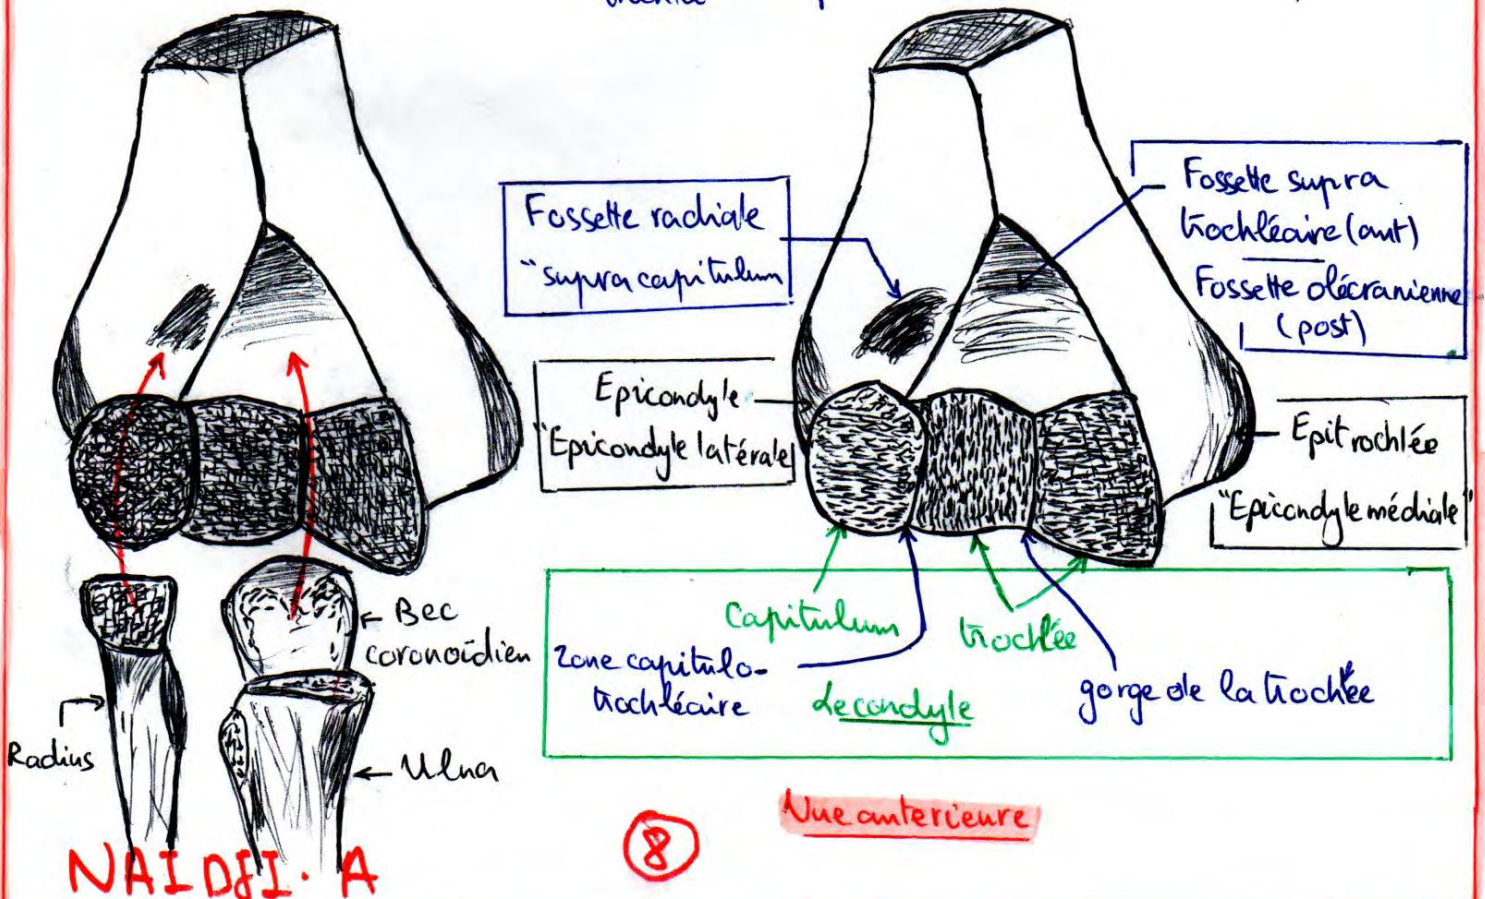 trochlée
Fossette radiale
"supra capitulum
Fossette supra
trochléaire (ant)
Fossette olécranienne
(post)
Epicondyle
"Epicondyle latérale
Epitrochlée
"Epicondyle médiale"
Bec
coronoïdien
Radius
Ulna
Capitulum
trochlée
Zone capitulo-
trochléaire
Le condyle
gorge de la trochlée
Vue anterieure
8
NAIDJI. A